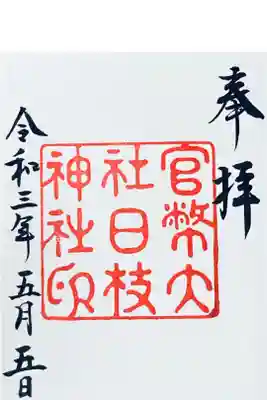 奉拝
官幣大
社日枝
神社印
令和三年五月五日